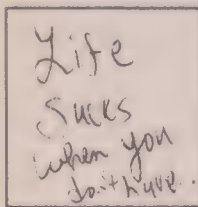 Life
sucks
when you
don't have.